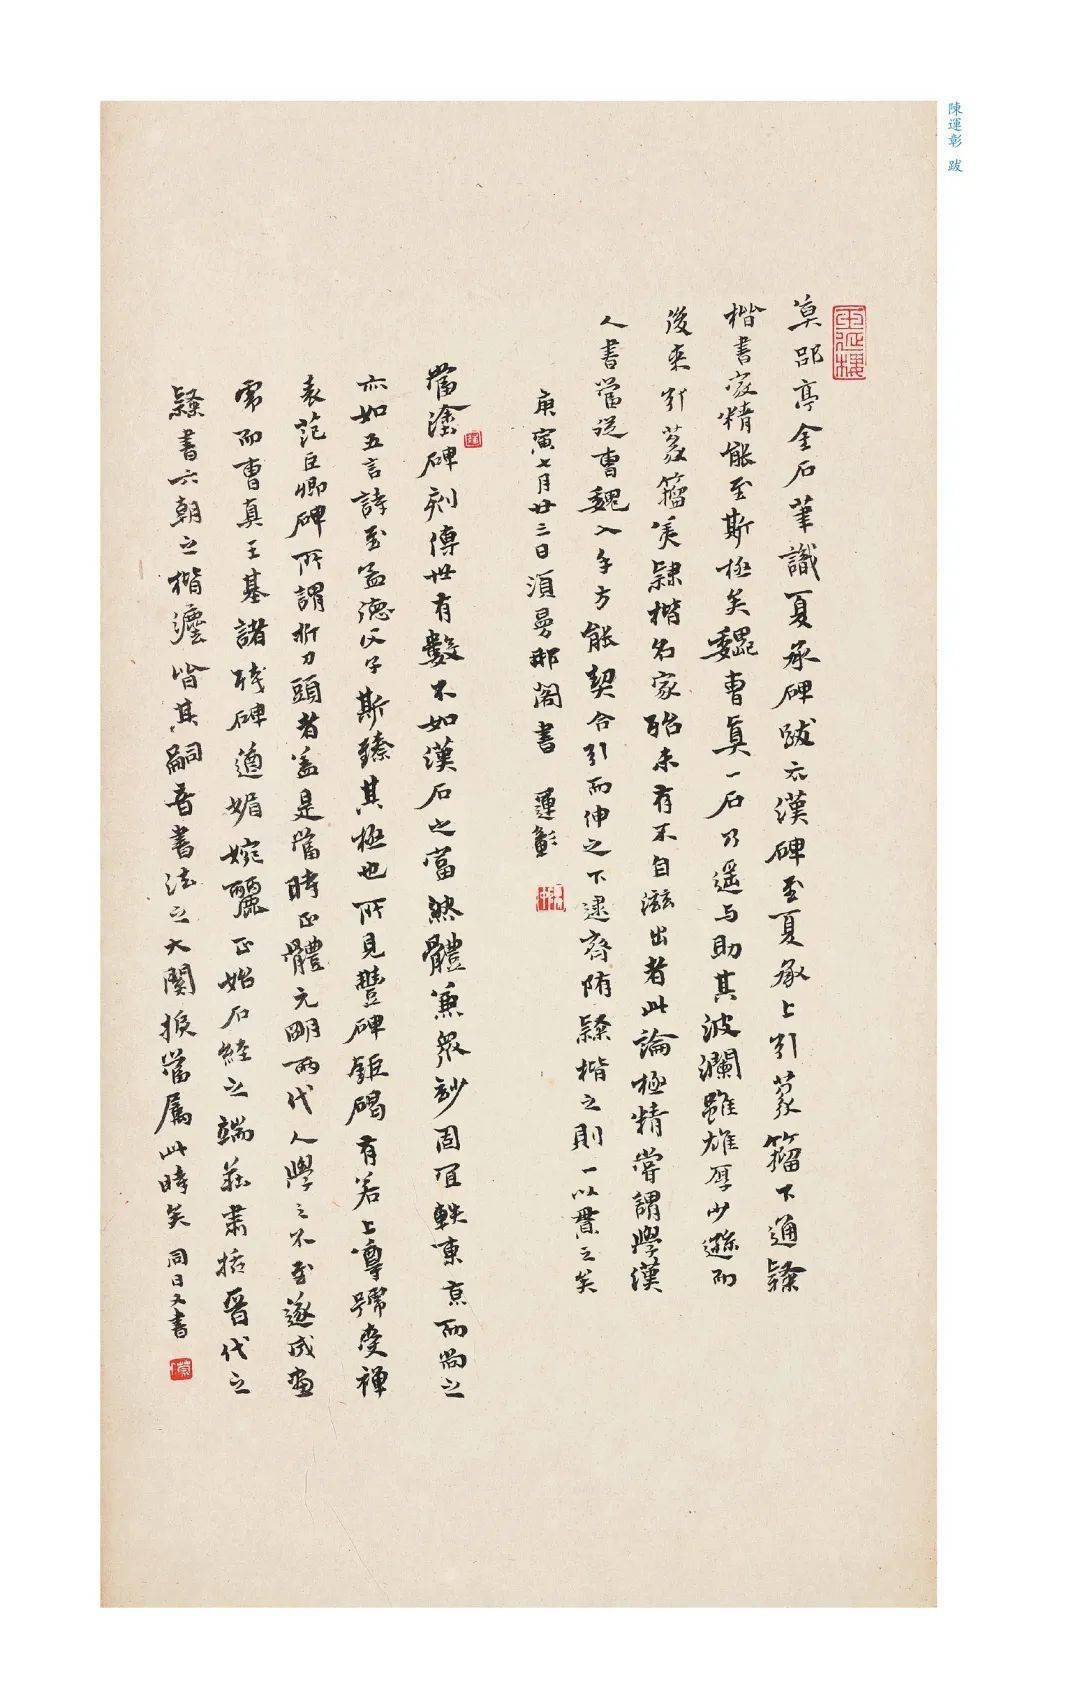 陳運彰 跋
莫郘亭金石筆識夏承碑跋云漢碑至夏承上引篆籀下通隸
楷書家精能至斯極矣魏曹真一石乃遥与助其波瀾雖雄厚少遜而
後来引篆籀為隸楷名家殆未有不自滋出者此論極精嘗謂學漢
人書當從曹魏入手方能契合引而伸之下逮齊隋隸楷之則一以貫之矣
庚寅七月廿三日須曼那閣書 運彰
當塗碑刻傳世有數不如漢石之富然體兼衆妙固宜軼東京而尚之
亦如五言詩至孟德父子斯臻其極也所見豐碑鉅碣有若上尊號受禪
表范巨卿碑所謂折刀頭者盖是當時正體元明兩代人學之不至遂成惡
索而曹真王基諸殘碑遒媚婉麗正始石經之端莊肅括晋代之
隸書六朝之楷灋皆其嗣音書法之大關捩當屬此時矣 同日又書